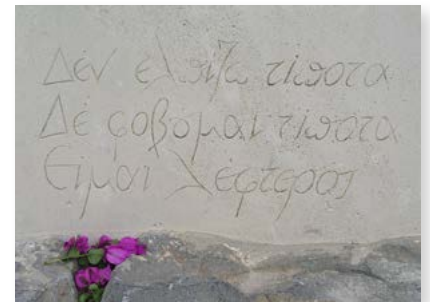 Δέν ελπίζω τίποτα
Δέ φοβᾶμαι τίποτα
Εἶμαι λέφτερος